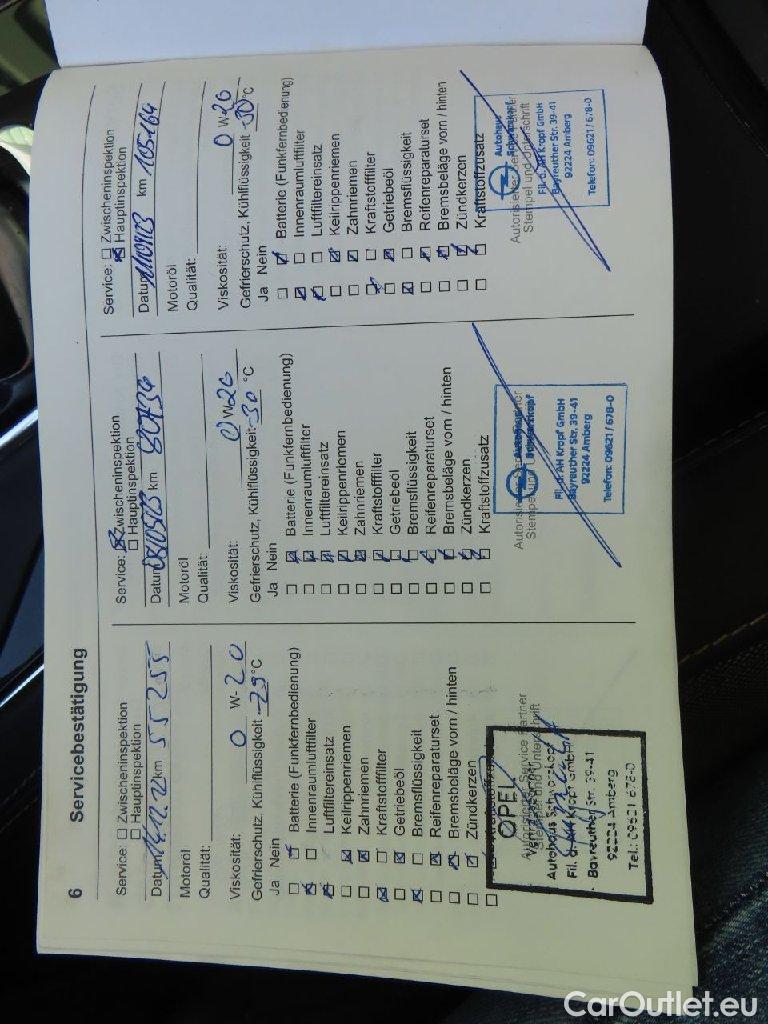 6 Servicebestätigung
Service: Zwischeninspektion
Hauptinspektion
Datum 12.22 km 55255
Motoröl
Qualität:
Viskosität: 0 W-20
Gefrierschutz, Kühlflüssigkeit -29°C
Ja Nein
Batterie (Funkfernbedienung)
Innenraumluftfilter
Luftfiltereinsatz
Keilrippenriemen
Zahnriemen
Kraftstofffilter
Getriebeöl
Bremsflüssigkeit
Reifenreparaturset
Bremsbeläge vorn / hinten
Zündkerzen
Autorisierter Service Partner
Stempel und Unterschrift
OPEL
Autohaus Schwarzkopf
Fil. d. AH Kropf GmbH
Bayreuther Str. 39-41
92224 Amberg
Tel.: 09621 678-0
Service: Zwischeninspektion
Hauptinspektion
Datum km
Motoröl
Qualität:
Viskosität: 0 W-20
Gefrierschutz, Kühlflüssigkeit -30 °C
Ja Nein
Batterie (Funkfernbedienung)
Innenraumluftfilter
Luftfiltereinsatz
Keilrippenriemen
Zahnriemen
Kraftstofffilter
Getriebeöl
Bremsflüssigkeit
Reifenreparaturset
Bremsbeläge vorn / hinten
Zündkerzen
Kraftstoffzusatz
Autohaus
Fil. d. AH Kropf GmbH
Bayreuther Str. 39-41
92224 Amberg
Telefon: 09621 / 678-0
Service: Zwischeninspektion
Hauptinspektion
Datum km 105164
Motoröl
Qualität:
Viskosität: 0 W-20
Gefrierschutz, Kühlflüssigkeit -30°C
Ja Nein
Batterie (Funkfernbedienung)
Innenraumluftfilter
Luftfiltereinsatz
Keilrippenriemen
Zahnriemen
Kraftstofffilter
Getriebeöl
Bremsflüssigkeit
Reifenreparaturset
Bremsbeläge vorn / hinten
Zündkerzen
Kraftstoffzusatz
Stempel und Unterschrift
Autohaus
Fil. d. AH Kropf GmbH
Bayreuther Str. 39-41
92224 Amberg
Telefon: 09621 / 678-0
CarOutlet.eu